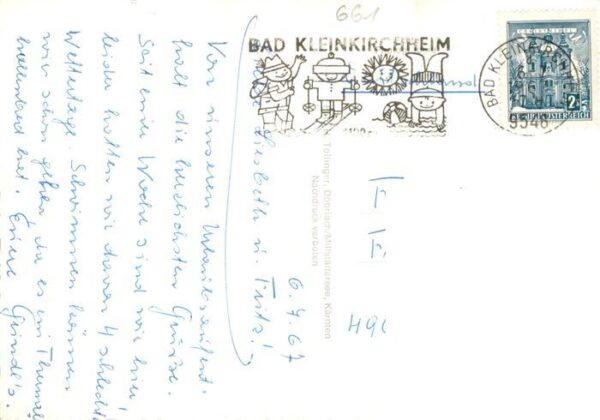 661
BAD KLEINKIRCHHEIM
BAD KLEINKIRCHHEIM
9546
2 S
REPUBLIK ÖSTERREICH
6. 7. 67
Liesbeth u. Fritz!
Von unserem Urlaubsaufent-
halt die herzlichsten Grüsse.
Seit einer Woche sind wir hier
leider hatten wir davon 4 schlecht
Wettertage. Schwimmen können
wir schon gehen, da es ein Thermal
hallenbad hat. Eure
Tollinger, Döbriach/Millstättersee, Kärnten
Nachdruck verboten